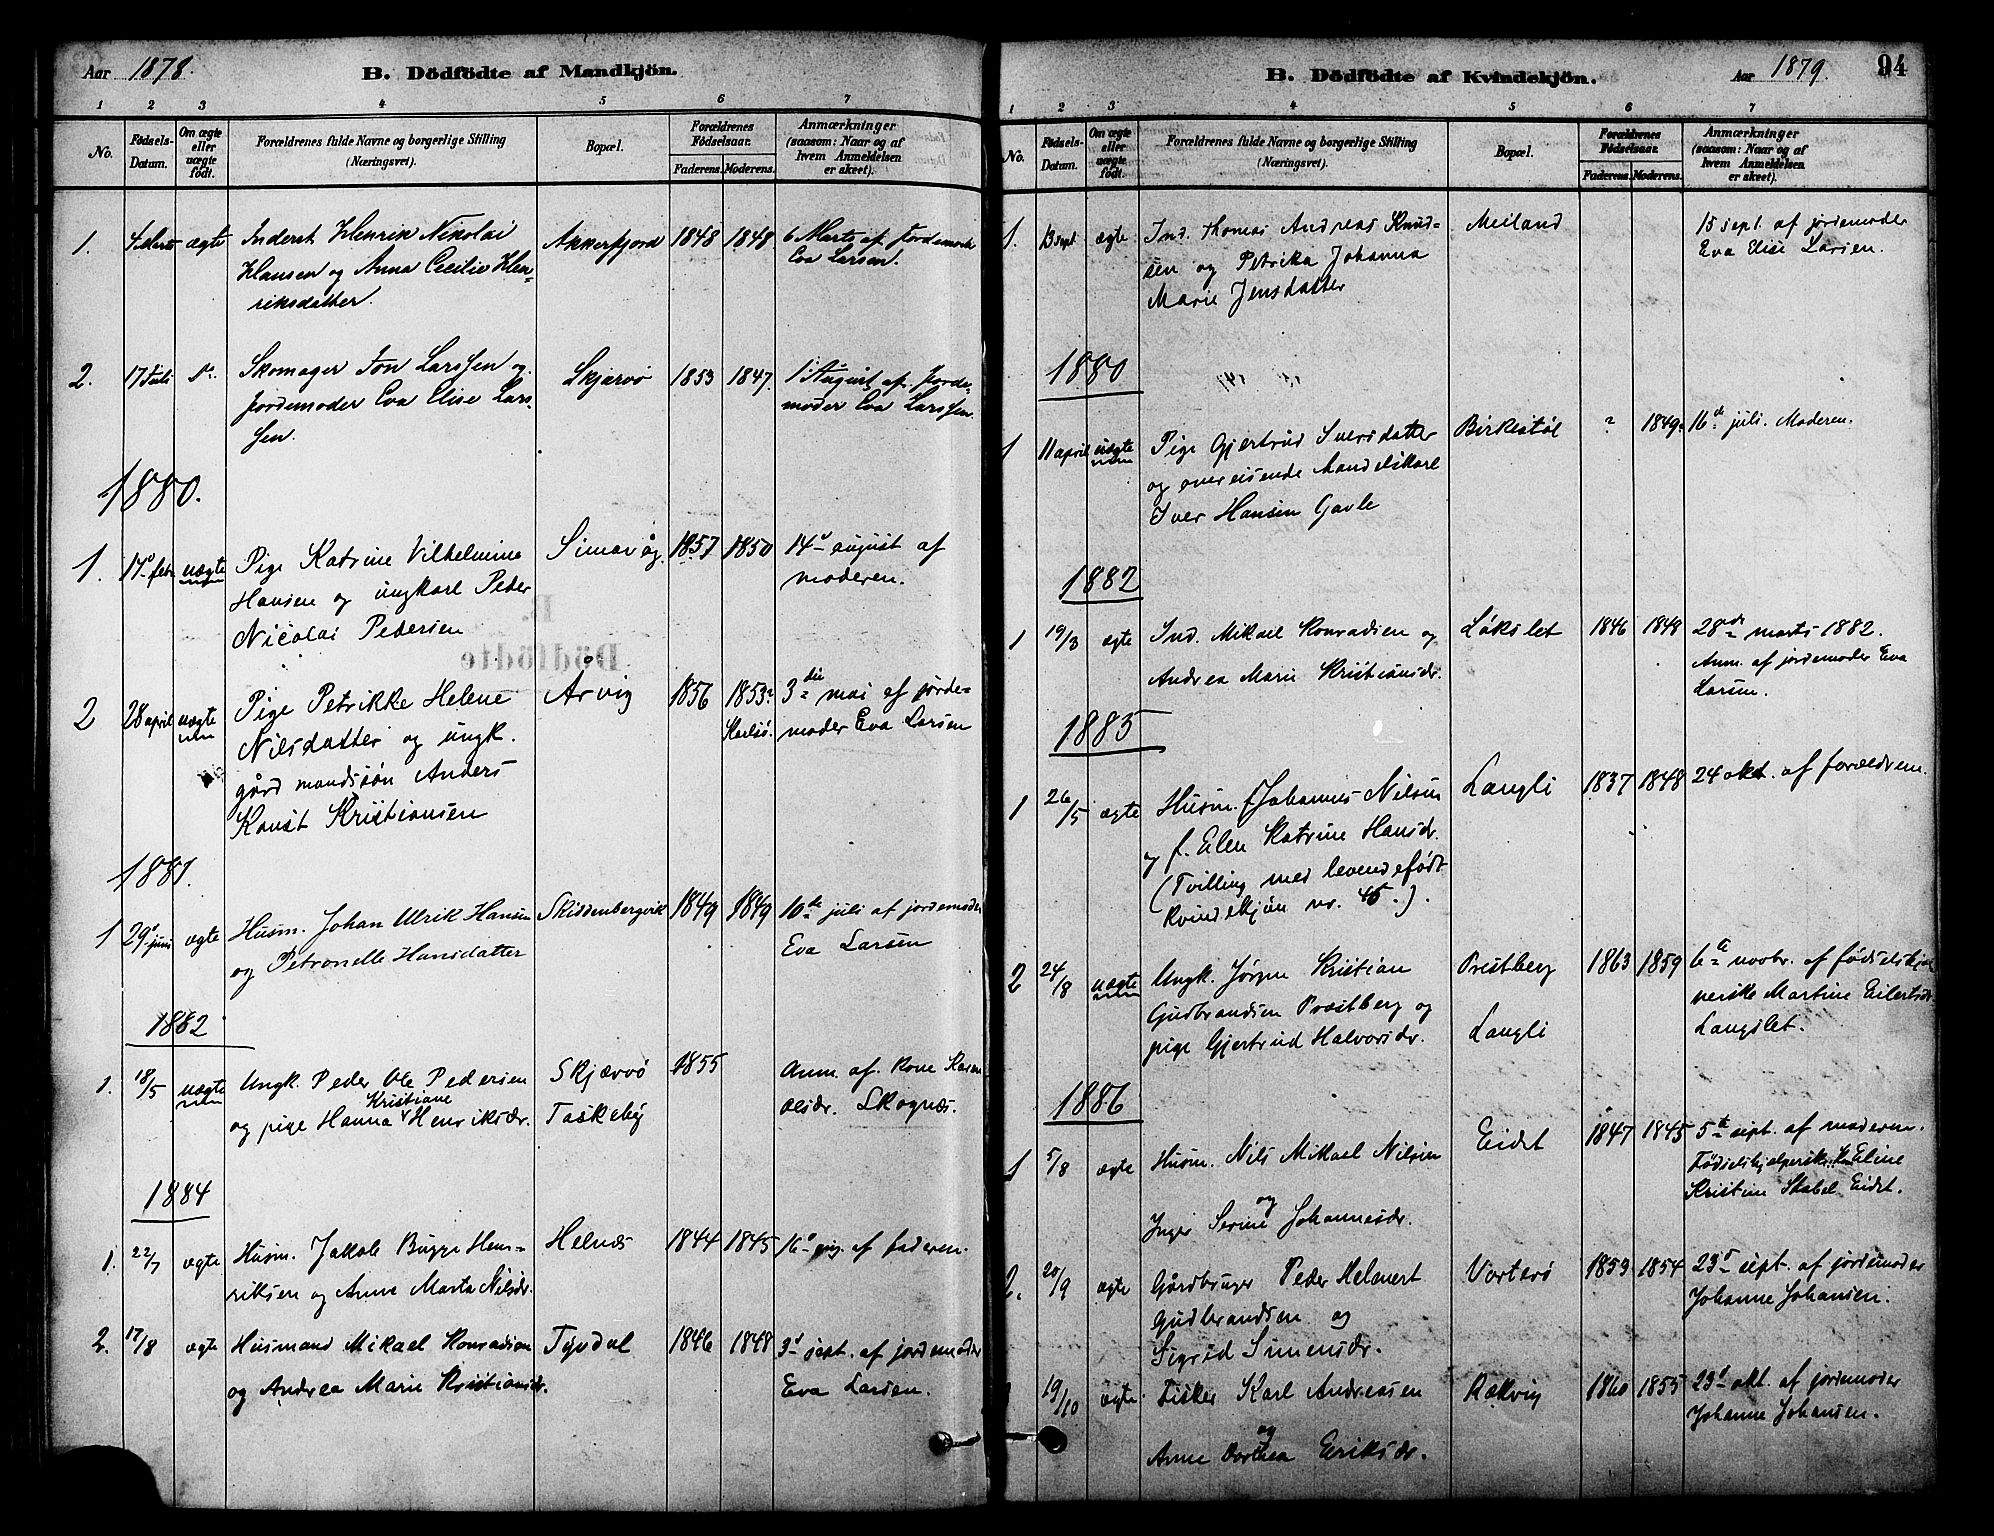 Aar 1878.
B. Dödfödte af Mandkjön.
1 2 3 4 5 6 7
No.
Födsels-Datum.
Om ægte eller uægte födt.
Forældrenes fulde Navne og borgerlige Stilling (Næringsvei).
Bopæl.
Forældrenes Födselsaar.
Faderens. Moderens.
Anmærkninger (saasom: Naar og af hvem Anmeldelsen er skeet).
1. 4 Marts ægte Inderst Henrik Nikolai Akkerfjord 1848 1848 6 Marts af Jordemoder
Hansen og Anna Cecilie Hen- Eva Larsen.
riksdatter.
2. 17 Juli Do. Skomager Jon Larssen og Skjærvö 1853 1847. 1 August af Jorde-
Jordemoder Eva Elise Lars- moder Eva Larssen.
sen.
1880.
1. 17 febr uægte Pige Katrine Vilhelmine Simavåg 1857 1850 14 august af
Hansen og ungkarl Peder moderen.
Nicolai Pedersen
2 28 april uægte Pige Petrikke Helene Årvig 1856 1853 3die mai af jorde-
Nilsdatter og ungk. Karlsö. moder Eva Larsen
gårdmandssön Anders
Konst Kristiansen
1881.
1 29 juni ægte Husm. Johan Ulrik Hansen Skiddenbergvik 1849 1849 10de juli af jordemoder
og Petronelle Hansdatter Eva Larsen
1882
1. 18/5 uægte Ungk. Peder Ole Pedersen Skjærvö 1855 Anm. af Kone Karen
Kristiane
og pige Hanna Henriksdr. Taskeby Olsdr. Skognæs.
1884
1. 22/7 ægte Husm. Jakob Bugge Hen- Helnæs 1844 1845 16 aug. af faderen.
riksen og Anne Marta Nilsdr.
2. 17/8 ægte Husmand Mikael Konradsen Tyvdal 1846 1848 3 sept. af jordemoder
og Andrea Marie Kristiansdr. Eva Larsen.
B. Dödfödte af Kvindekjön.
Aar 1879.
94
1 2 3 4 5 6 7
No.
Födsels-Datum.
Om ægte eller uægte födt.
Forældrenes fulde Navne og borgerlige Stilling (Næringsvei).
Bopæl.
Forældrenes Födselsaar.
Faderens. Moderens.
Anmærkninger (saasom: Naar og af hvem Anmeldelsen er skeet).
1. 13 sept ægte Ind. Thomas Andreas Knud- Meiland 15 sept. af jordemoder
sen og Petrika Johanna Eva Elise Larsen.
Marie Jensdatter
1880
1 11 april uægte Pige Gjertrud Iversdatter Birkestøl ? 1849 16de juli. Moderen.
og omreisende handelskarl
Iver Hansen Gavle
1882
1 19/3 ægte Ind. Mikael Konradsen og Løkslet 1846 1848 28de marts 1882.
Andrea Marie Kristiansdr. Anm. af jordemoder Eva
Larsen.
1885
1 26/5 ægte Husm. Johannes Nilsen Langli 1837 1848 24 okt. af forældrene.
og f. Elen Katrine Hansdr.
(Tvilling med levendefödt
kvindekjön no. 45.).
2 24/8 uægte Ungk. Jørgen Kristian Præstberg 1863 1859 6te novbr. af fødselshjæl-
Gudbrandsen Præstberg og perske Martine Eilertsdr.
pige Gjertrud Halvorsdr. Langli Langslet.
1886
1 5/8 ægte Husm. Nils Mikael Nilsen Eidet 1847 1845 5te sept. af moderen.
og Fødselshjelperske Eline
Inger Serine Johannesdr. Kristine Stabel Eidet.
2. 20/9 ægte Gårdbruger Peder Helmert Vorterö 1853 1854 23 sept. af jordemoder
Gudbrandsen og Johanne Johansen.
Sigrid Simensdr.
19/10 ægte Fisker Karl Andreasen Rækvig 1860 1855 23 okt. af jordemoder
og Johanne Johansen.
Anne Dorthea Eriksdr.